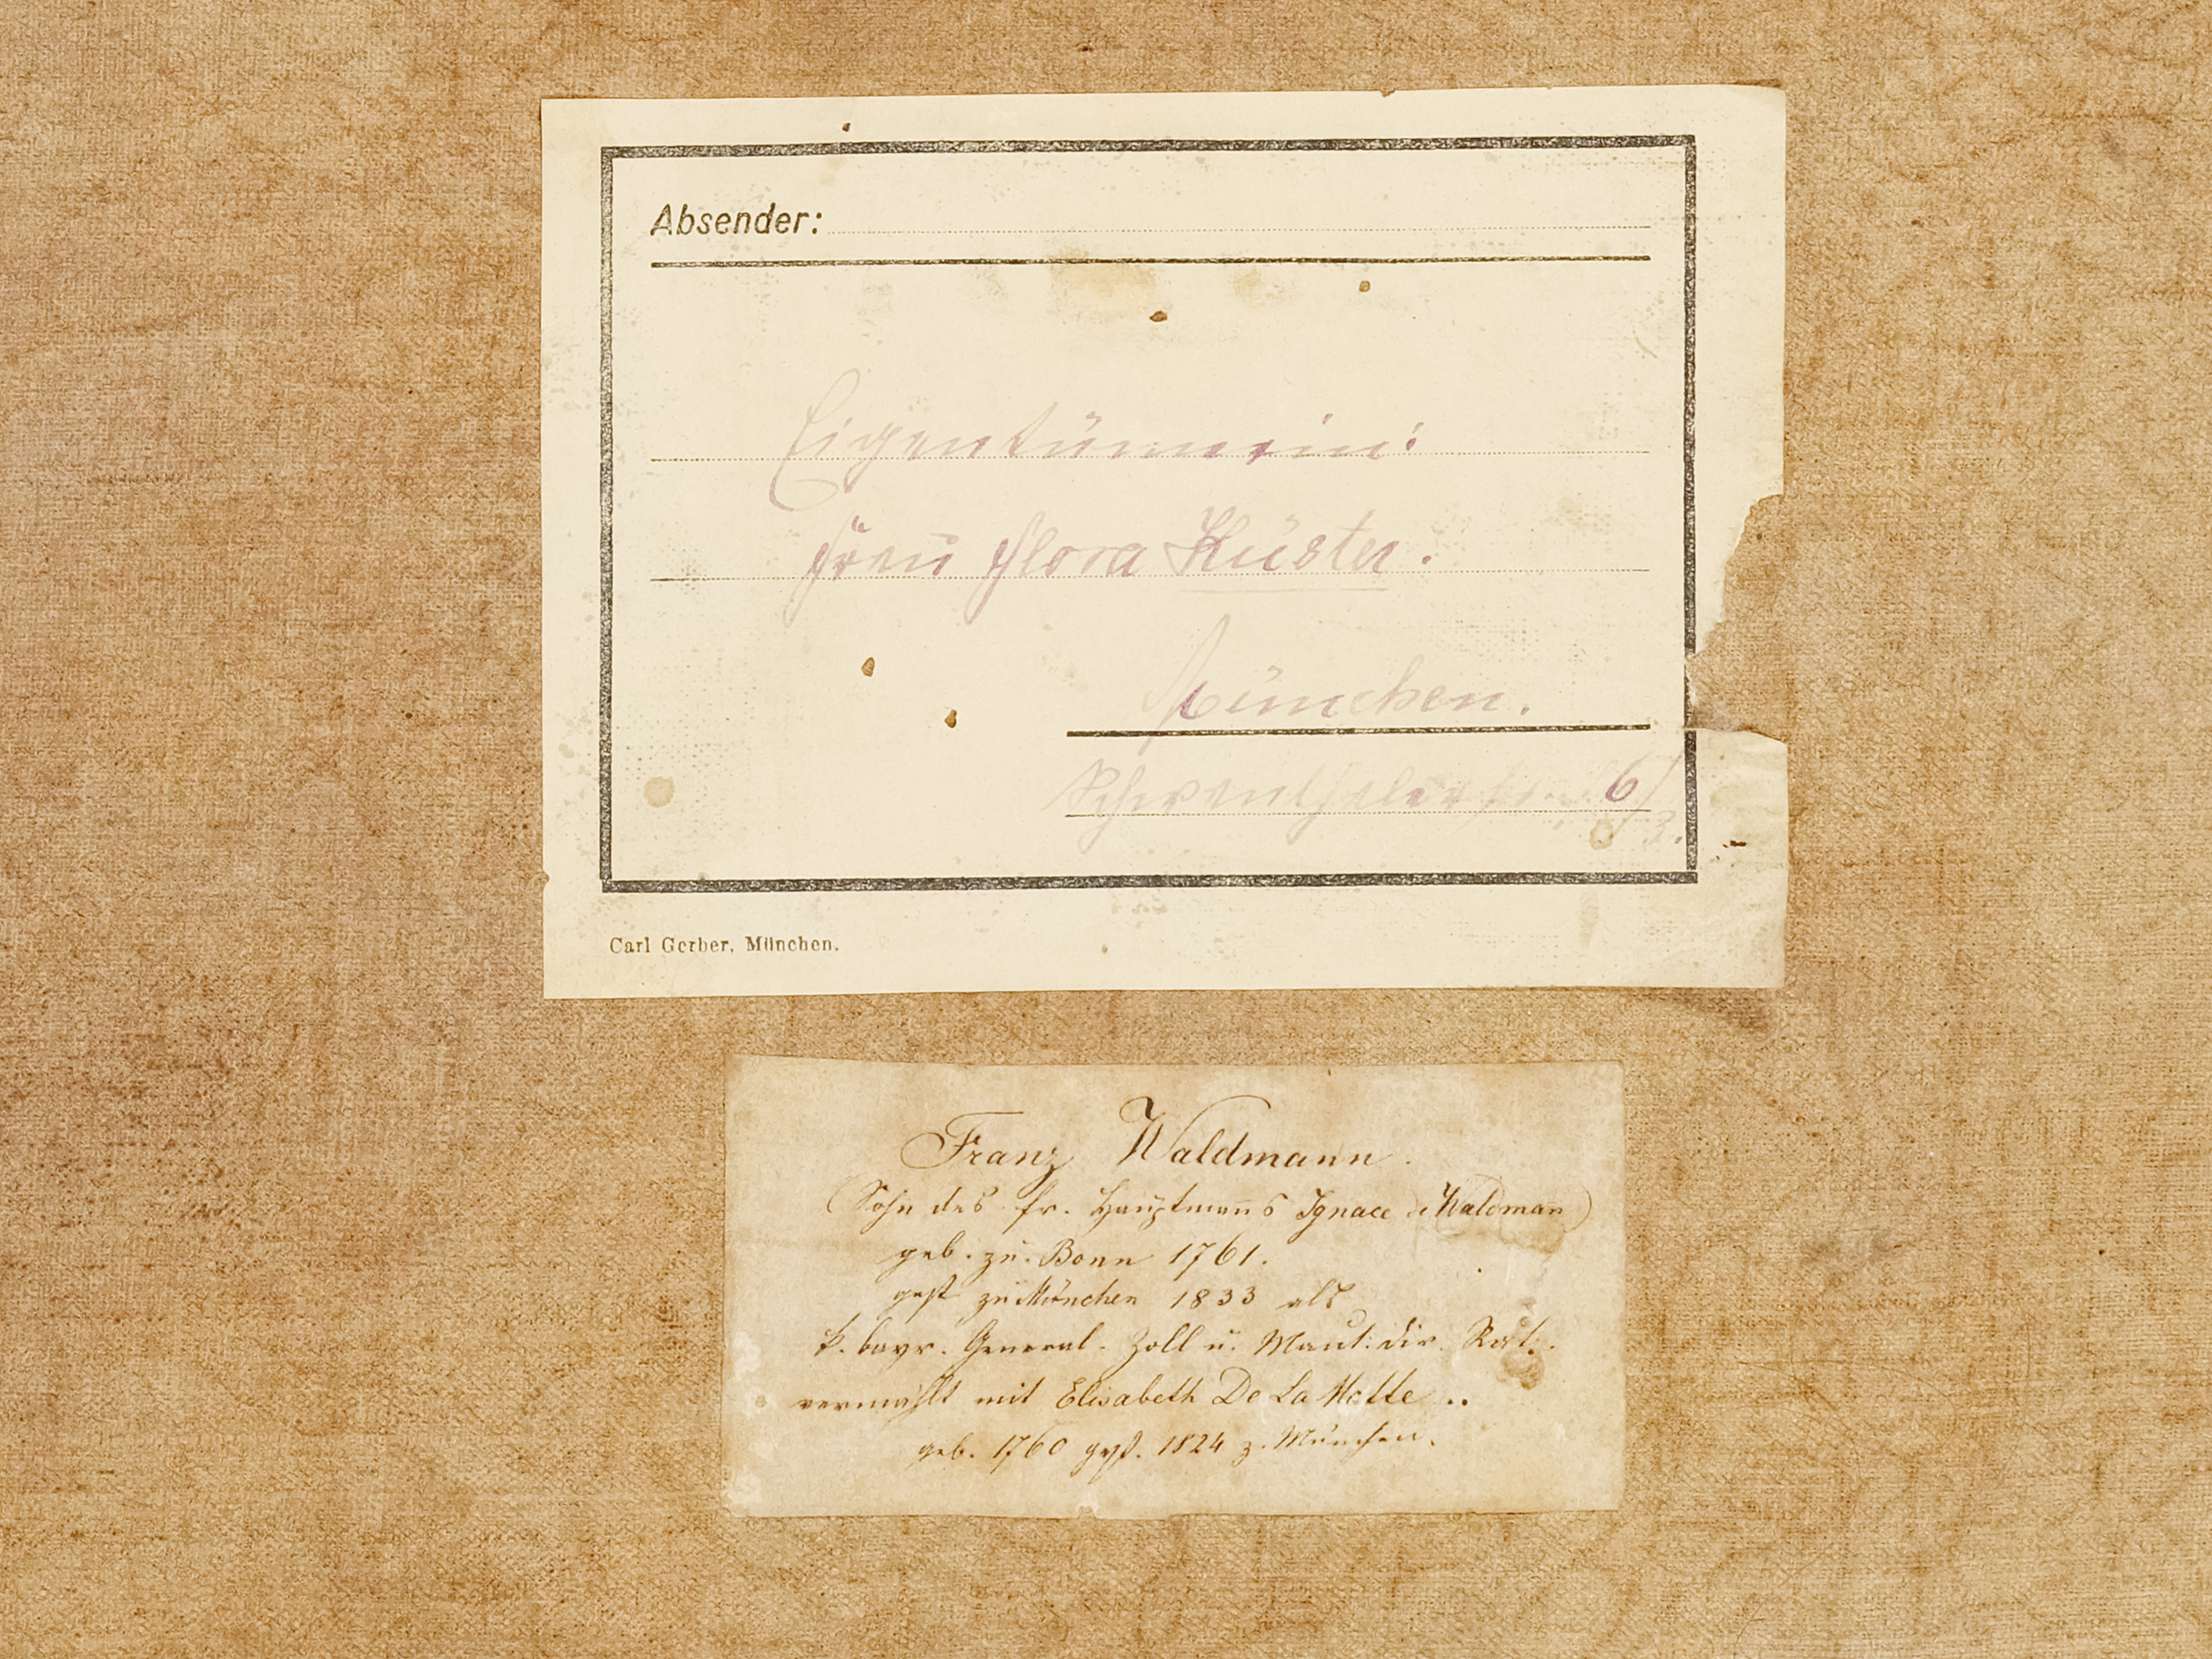 Absender:
Eigentümerin:
Frau Flora Küster.
München.
Schwanthalerstr. 6/
3.
Carl Gerber, München.
Franz Waldmann.
(Sohn des fr. Hauptmanns Ignace de Waldman̄)
geb. zu Bonn 1761.
gest zu München 1833 als
k. bayr. General-Zoll u. Maut: dir. Rat.
vermählt mit Elisabeth De La Motte ..
geb. 1760 gest. 1824 z. München.